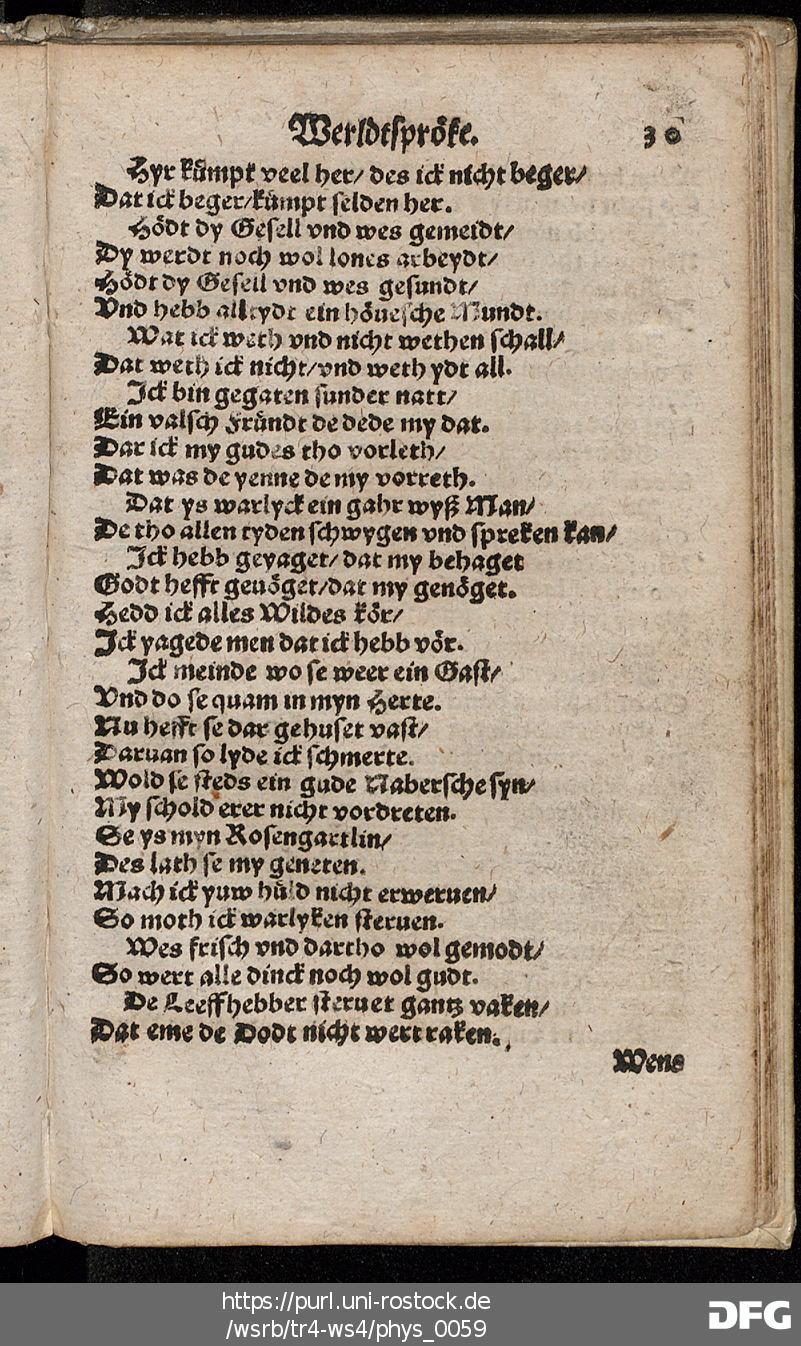 Werldtspröke. 30
Hyr kümpt veel her/ des ick nicht beger/
Dat ick beger/kümpt selden her.
Hödt dy Gesell vnd wes gemeidt/
Dy werdt noch wol lones arbeydt/
Hödt dy Gesell vnd wes gesundt/
Vnd hebb alltydt ein höuesche Mundt.
Wat ick weth vnd nicht wethen schall/
Dat weth ick nicht/vnd weth ydt all.
Ick bin gegaten sunder natt/
Ein valsch Fründt de dede my dat.
Dar ick my gudes tho vorleth/
Dat was de yenne de my vorreth.
Dat ys warlyck ein gahr wyß Man/
De tho allen tyden schwygen vnd spreken kan/
Ick hebb geyaget/ dat my behaget
Godt hefft geuöget/dat my genöget.
Hedd ick alles Wildes kör/
Ick yagede men dat ick hebb vör.
Ick meinde wo se weer ein Gast/
Vnd do se quam in myn Herte.
Nu hefft se dar gehuset vast/
Daruan so lyde ick schmerte.
Wold se steds ein gude Nabersche syn/
My schold erer nicht vordreten.
Se ys myn Rosengartlin/
Des lath se my geneten.
Mach ick yuw hüld nicht erweruen/
So moth ick warlyken steruen.
Wes frisch vnd dartho wol gemodt/
So wert alle dinck noch wol gudt.
De Leeffhebber steruet gantz vaken/
Dat eme de Dodt nicht wert raken.
Wens
https://purl.uni-rostock.de
/wsrb/tr4-ws4/phys_0059
DFG